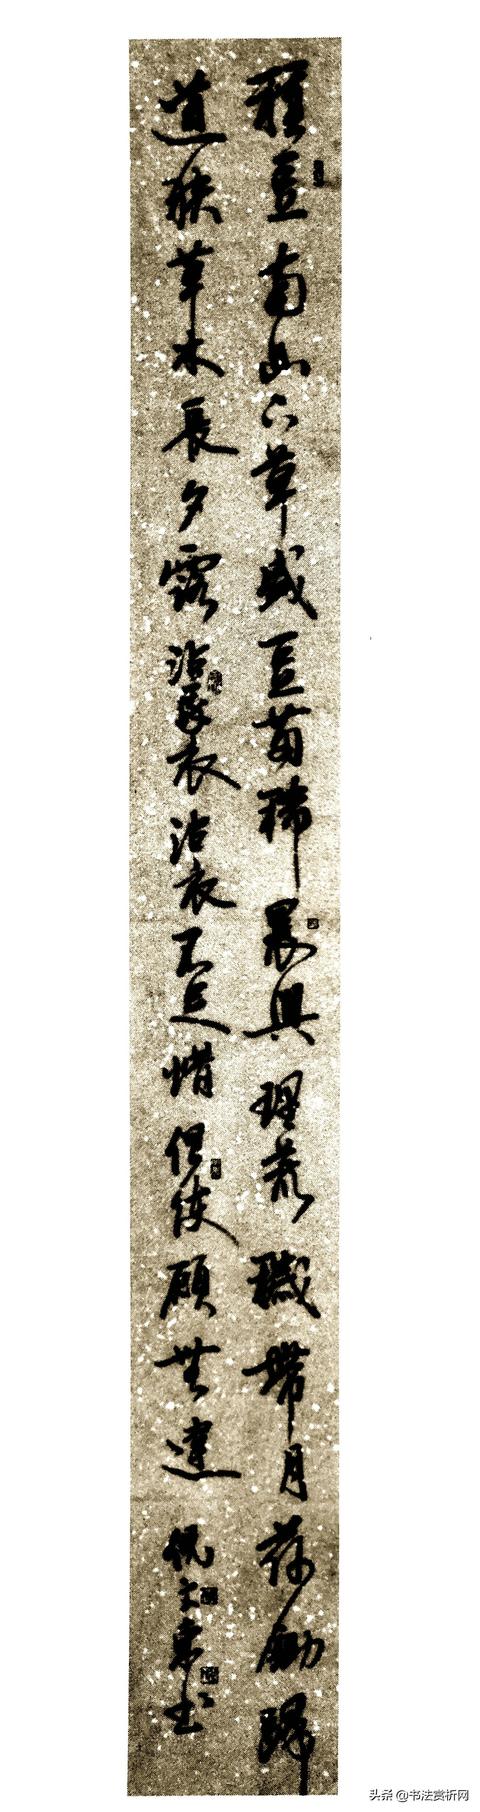 種豆南山下草盛豆苗稀晨興理荒穢帶月荷鋤歸
道狹草木長夕露沾我衣沾衣不足惜但使願無違 倪文東书
头条 @书法赏析网